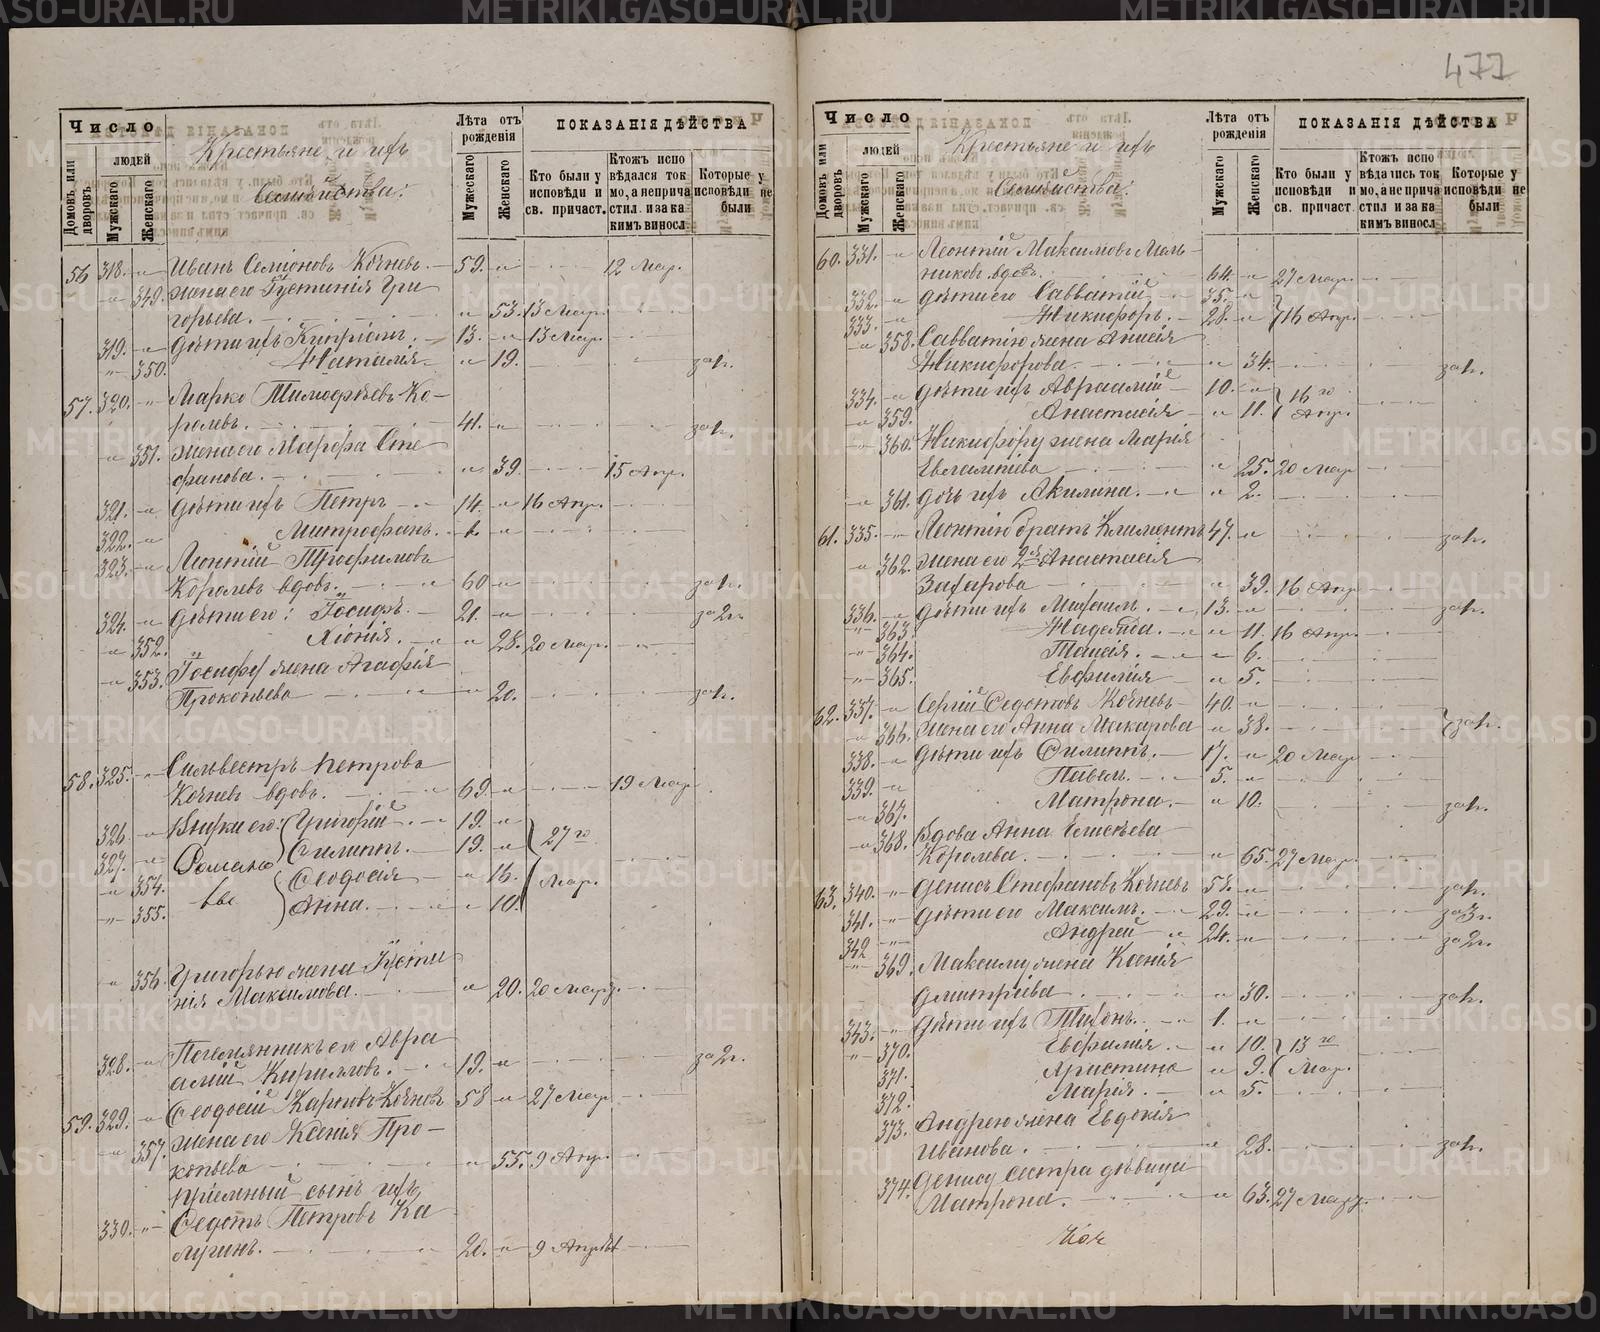 477
Число
Крестьяне и ихъ
Семейства:
Лѣта отъ рожденія
ПОКАЗАНІЯ ДѢЙСТВА
Домовъ или дворовъ.
людей
Мужскаго
Женскаго
Мужескаго
Женскаго
Кто были у исповѣди и св. причаст.
Ктожъ исповѣдался токмо, а непричастил и за каким виносл.
Которые у исповѣди не были
56 318. Иванъ Семіоновъ Кочневъ. 59. 12 Мар.
349. жена его Іустинія Гри
горьева. 53. 13 Мар.
319. дѣти ихъ Кипріанъ. 13. 13 Мар.
350. Наталія 19. за 1г.
57. 320. Марко Тимофѣевъ Ко-
ролевъ. 41. за 1г.
351. жена его Марфа Сте
фанова. 39. 15 Апр.
321. дѣти ихъ Петръ 14. 16 Апр.
322. Митрофанъ. 1.
323. Леонтій Трофимовъ
Королевъ вдовъ. 60 за 1г.
324. дѣти его: Іосифъ. 21. за 2г.
352. Хіонія. 28. 20 Мар.
353. Іосифу жена Агафія
Прокопьева 20. за 1г.
58. 325. Сильвестръ Петровъ
Кочневъ вдовъ. 69. 19 Мар
326. Внуки его: Григорій 19.
327. Романо Филиппъ. 19. 27 го
354. вы Ѳеодосія 16. Мар.
355. Анна. 10.
356. Григорью жена Іусти
нія Максимова. 20. 20 Мар.
328. Племянникъ его Авра
амій Кирилловъ. 19. за 2г.
59. 329. Ѳеодосій Карповъ Кочневъ 58 27 Мар
357. жена его Ксенія Про-
копьева 55. 9 Апр.
пріемный сынъ ихъ
330. Ѳедотъ Петровъ Ка
лугинъ. 20. 9 Апрѣл
Число
Крестьяне и ихъ
Семейства:
Лѣта отъ рожденія
ПОКАЗАНІЯ ДѢЙСТВА
Домовъ или дворовъ
людей
Мужскаго
Женскаго
Мужскаго
Женскаго
Кто были у исповѣди и св. причаст
Ктожъ исповѣдалсь токмо, а не причастил и за каким виносл
Которые у исповѣди не были
60. 331. Леонтій Максимовъ Мель-
никовъ вдовъ. 64. 27 Мар.
332. дѣти его Савватій 35.
333. Никифоръ. 28. 16 Апр.
358. Савватію жена Анисія
Никифорова 34. за 1г.
334. дѣти ихъ Авраамій 10. 16 го
359. Анастасія 11. Апр.
360. Никифору жена Марія
Евлампіева 25. 20 Мар
361. дочь ихъ Акилина. 2.
61. 335. Леонтію братъ Климентъ 47. за 1г.
362. жена его 2я Анастасія
Захарова 39. 16 Апр
336. дѣти ихъ Михаилъ. 13. за 1г.
363. Надежда. 11. 16 Апр.
364. Таисія. 6.
365. Евфимія 5.
62. 337. Сергій Ѳедотовъ Кочневъ 40.
366. жена его Анна Макарова 38. за 1г.
338. дѣти ихъ Филиппъ. 17. 20 Мар
339. Павелъ. 5.
367. Матрона. 10. за 1г.
368. Вдова Анна Елисѣева
Королева. 65. 27 Мар.
63. 340. Денисъ Стефановъ Кочневъ 57. за 1г.
341. дѣти его Максимъ. 29. за 3г.
342 Андрей 24. за 2г.
369. Максиму жена Ксенія
Дмитріева 30. за 1г.
343. дѣти ихъ Тихонъ. 1.
370. Евфимія. 10. 13 го
371. Христина 9. Мар.
372. Марія. 5.
373. Андрею жена Евдокія
Иванова. 28. за 1г.
374. Денису сестра дѣвица
Матрона. 63. 27 Мар.
METRIKI.GASO-URAL.RU